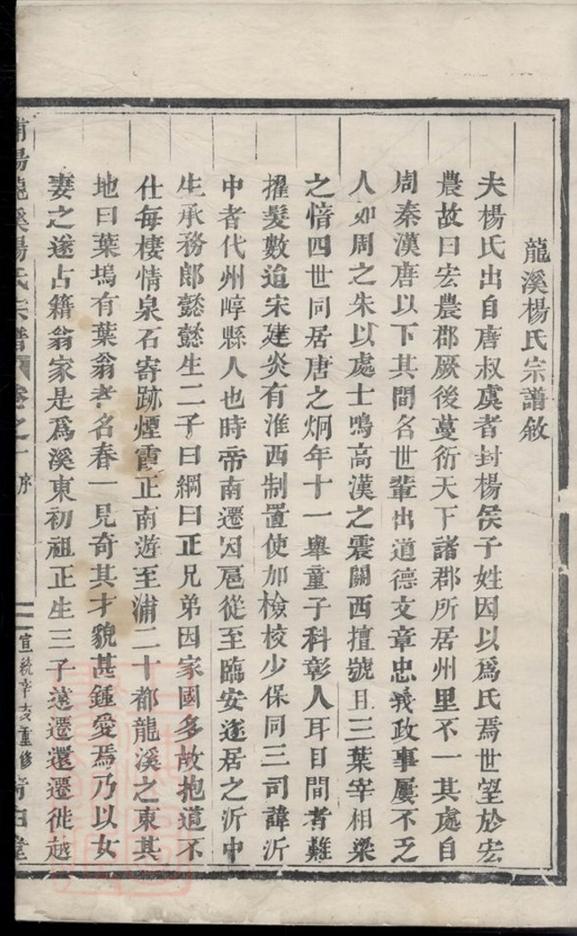 龍溪楊氏宗譜敘
夫楊氏出自唐叔虞者封楊侯子姓因以為氏焉世望於宏
農故曰宏農郡厥後蔓衍天下諸郡所居州里不一其處自
周秦漢唐以下其間名世輩出道德文章忠義政事屢不乏
人如周之朱以處士鳴高漢之震關西擅號且三葉宰相梁
之愔四世同居唐之炯年十一舉童子科彰人耳目間者難
擢髮數迨宋建炎有淮西制置使加檢校少保同三司諱沂
中者代州崞縣人也時帝南遷因扈從至臨安遂居之沂中
生承務郎懿懿生二子曰綱曰正兄弟因家國多故抱道不
仕每棲情泉石寄跡煙霞正南遊至浦二十都龍溪之東其
地曰葉塢有葉翁者名春一見奇其才貌甚鍾愛焉乃以女
妻之遂占籍翁家是為溪東初祖正生三子遠遷還遷徙越
浦陽龍溪楊氏宗譜 卷之一 序 一 宣統辛亥重修 清白堂